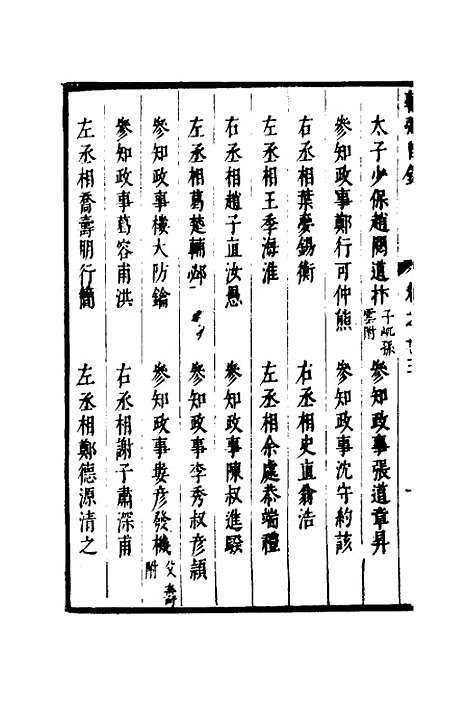 太子少保趙閱道抃 子屼孫雲附 參知政事張道章昇
參知政事鄭行可仲熊 參知政事沈守約該
右丞相葉夢錫衡 右丞相史直翁浩
左丞相王季海淮 左丞相余處恭端禮
右丞相趙子直汝愚 參知政事陳叔進騤
左丞相葛楚輔邲 參知政事李秀叔彥頴
參知政事樓大防鑰 參知政事婁彥發機 父 附
參知政事葛容甫洪 右丞相謝子肅深甫
左丞相喬壽朋行簡 左丞相鄭德源清之